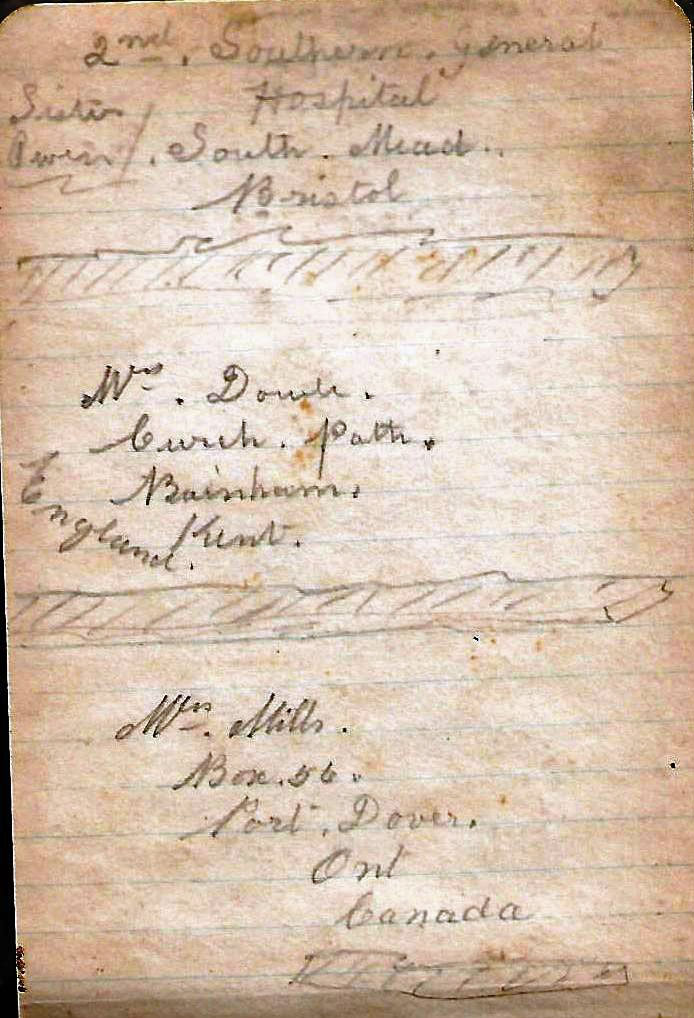 2nd. Southern. General
Hospital
Sister
Owen / . South. Mead..
Bristol
Mrs. Dowle.
Curch. Path.
Rainham.
Kent.
England.
Mrs. Mills.
Box. 56.
Port. Dover.
Ont
Canada